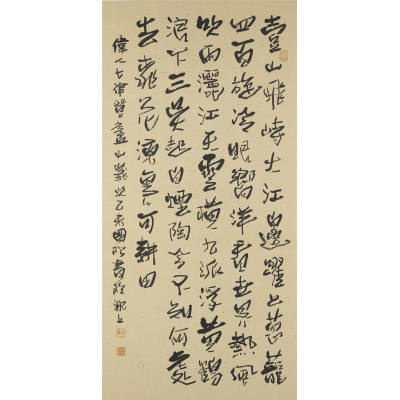 壹山飛峙大江邊躍上葱蘢
四百旋冷眼嚮洋看世界熱風
吹雨灑江天雲橫九派浮黃鶴
浪下三吳起白煙陶令不知何處
去桃花源里可耕田
偉人七律登廬山 乙未國 書於